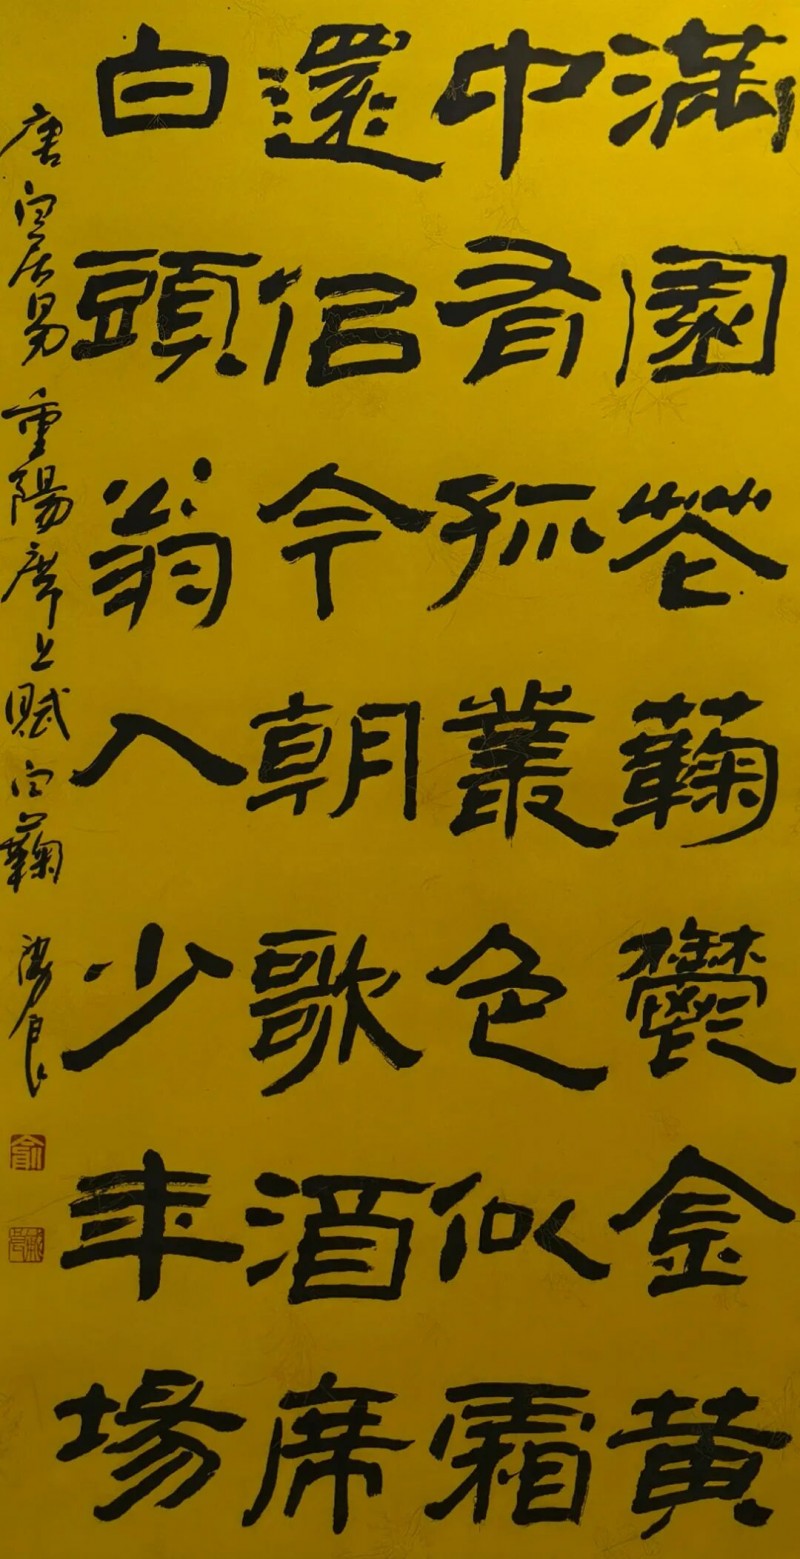 滿園花蘜鬱金黃
中有孤叢色似霜
還佀今朝歌酒席
白頭翁入少年場
唐白居易重陽席上賦白蘜